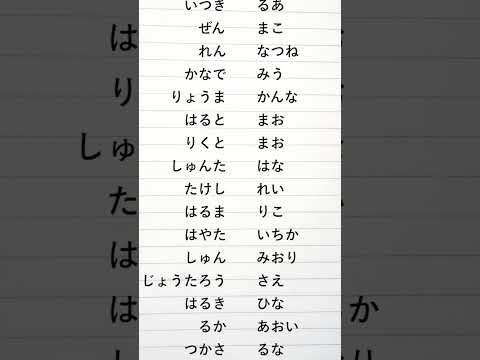 いつき るあ
ぜん まこ
れん なつね
かなで みう
りょうま かんな
はると まお
りくと まお
しゅんた はな
たけし れい
はるま りこ
はやた いちか
しゅん みおり
じょうたろう さえ
はるき ひな
るか あおい
つかさ るな